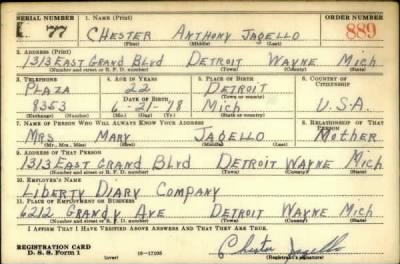 SERIAL NUMBER 1. NAME (Print) ORDER NUMBER
77 CHESTER ANTHONY JAGELLO 889
(First) (Middle) (Last)
2. ADDRESS (Print)
1313 EAST GRAND BLVD DETROIT WAYNE MICH
(Number and street or R. F. D. number) (Town) (County) (State)
3. TELEPHONE 4. AGE IN YEARS 5. PLACE OF BIRTH 6. COUNTRY OF CITIZENSHIP
PLAZA 22 DETROIT
(Town or county)
8353 DATE OF BIRTH -21-18 MICH U.S.A.
(Exchange) (Number) (Mo.) (Day) (Yr.) (State or country)
7. NAME OF PERSON WHO WILL ALWAYS KNOW YOUR ADDRESS 8. RELATIONSHIP OF THAT PERSON
MRS MARY JAGELLO MOTHER
(Mr., Mrs., Miss) (First) (Middle) (Last)
9. ADDRESS OF THAT PERSON
1313 EAST GRAND BLVD DETROIT WAYNE MICH
(Number and street or R. F. D. number) (Town) (County) (State)
10. EMPLOYER'S NAME
LIBERTY DIARY COMPANY
11. PLACE OF EMPLOYMENT OR BUSINESS
6212 GRANDY AVE DETROIT WAYNE MICH
(Number and street or R. F. D. number) (Town) (County) (State)
I AFFIRM THAT I HAVE VERIFIED ABOVE ANSWERS AND THAT THEY ARE TRUE.
REGISTRATION CARD
D. S. S. Form 1 (over) Chester Jagello
(Registrant's signature)